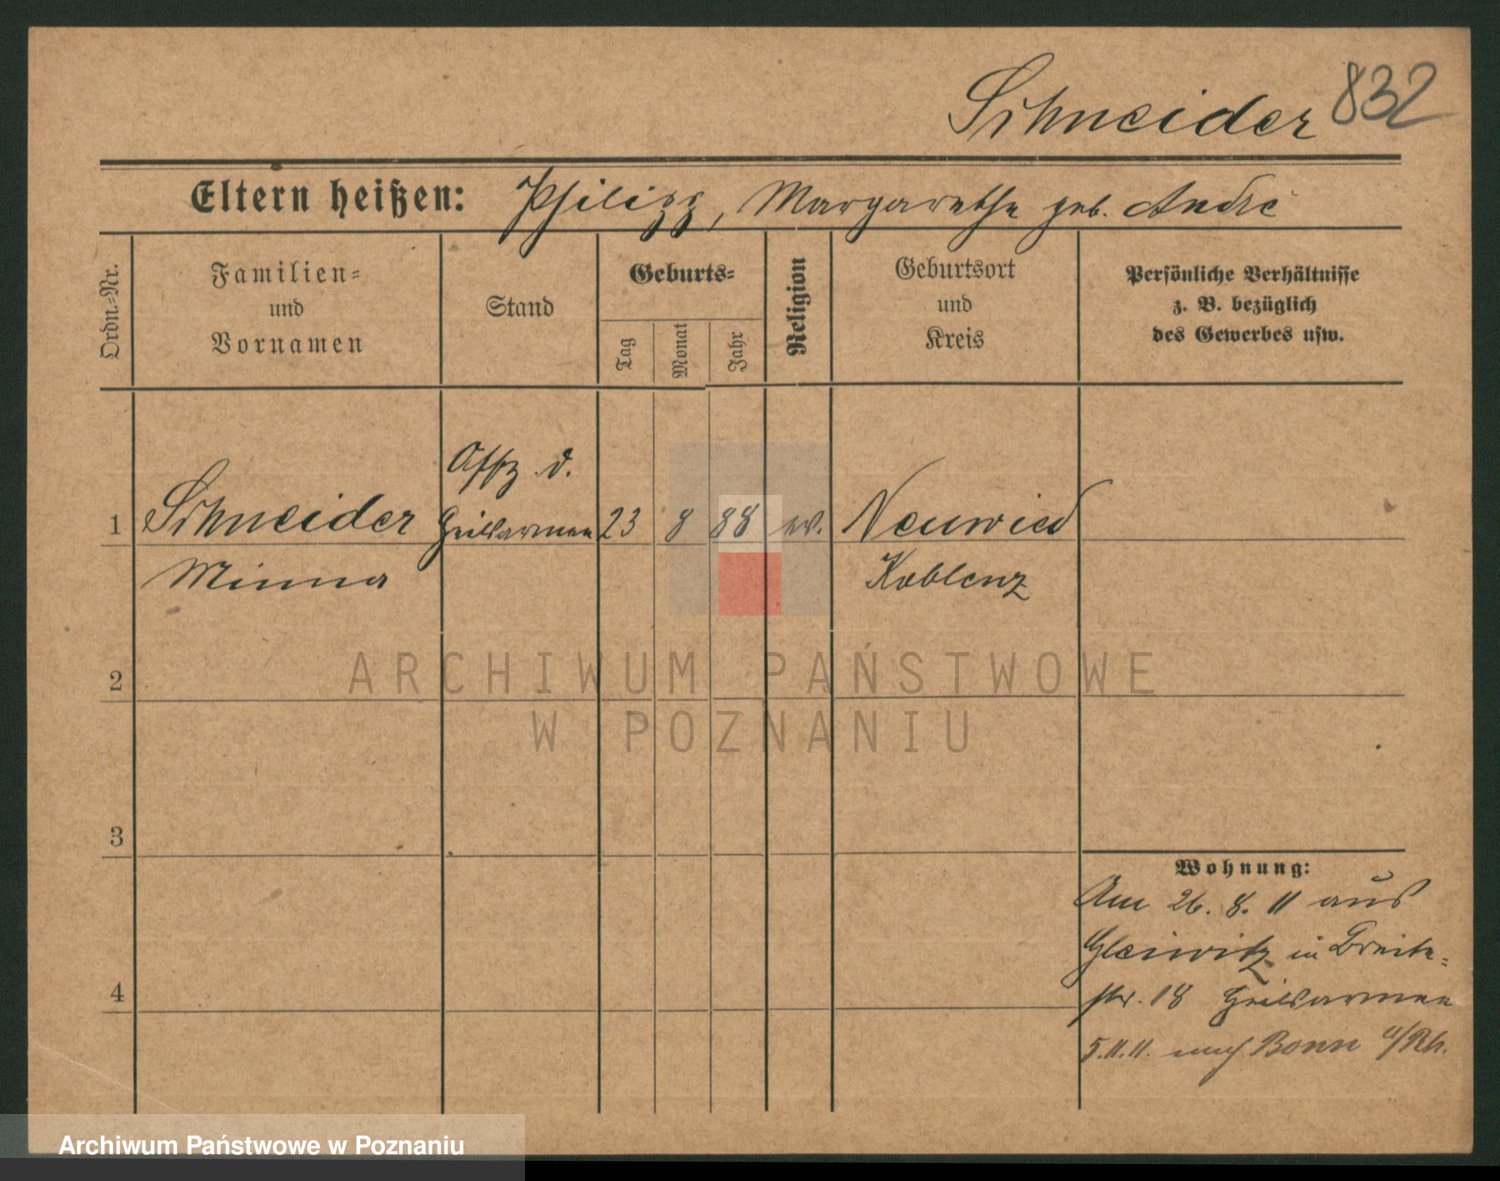 Schneider 832
Eltern heißen: Philipp, Margarethe geb. André
Ordn.-Nr.
Familien-
und
Vornamen
Stand
Geburts-
Tag
Monat
Jahr
Religion
Geburtsort
und
Kreis
Persönliche Verhältnisse
z. B. bezüglich
des Gewerbes usw.
Offz d.
1 Schneider Heilsarmee 23 8 88 ev. Neuwied
Minna Koblenz
ARCHIWUM PAŃSTWOWE
W POZNANIU
2
3
Wohnung:
Am 26. 8. 11 aus
Gleiwitz in Breite-
str. 18 Heilsarmee
5.11.11. nach Bonn a/Rh.
4
Archiwum Państwowe w Poznaniu